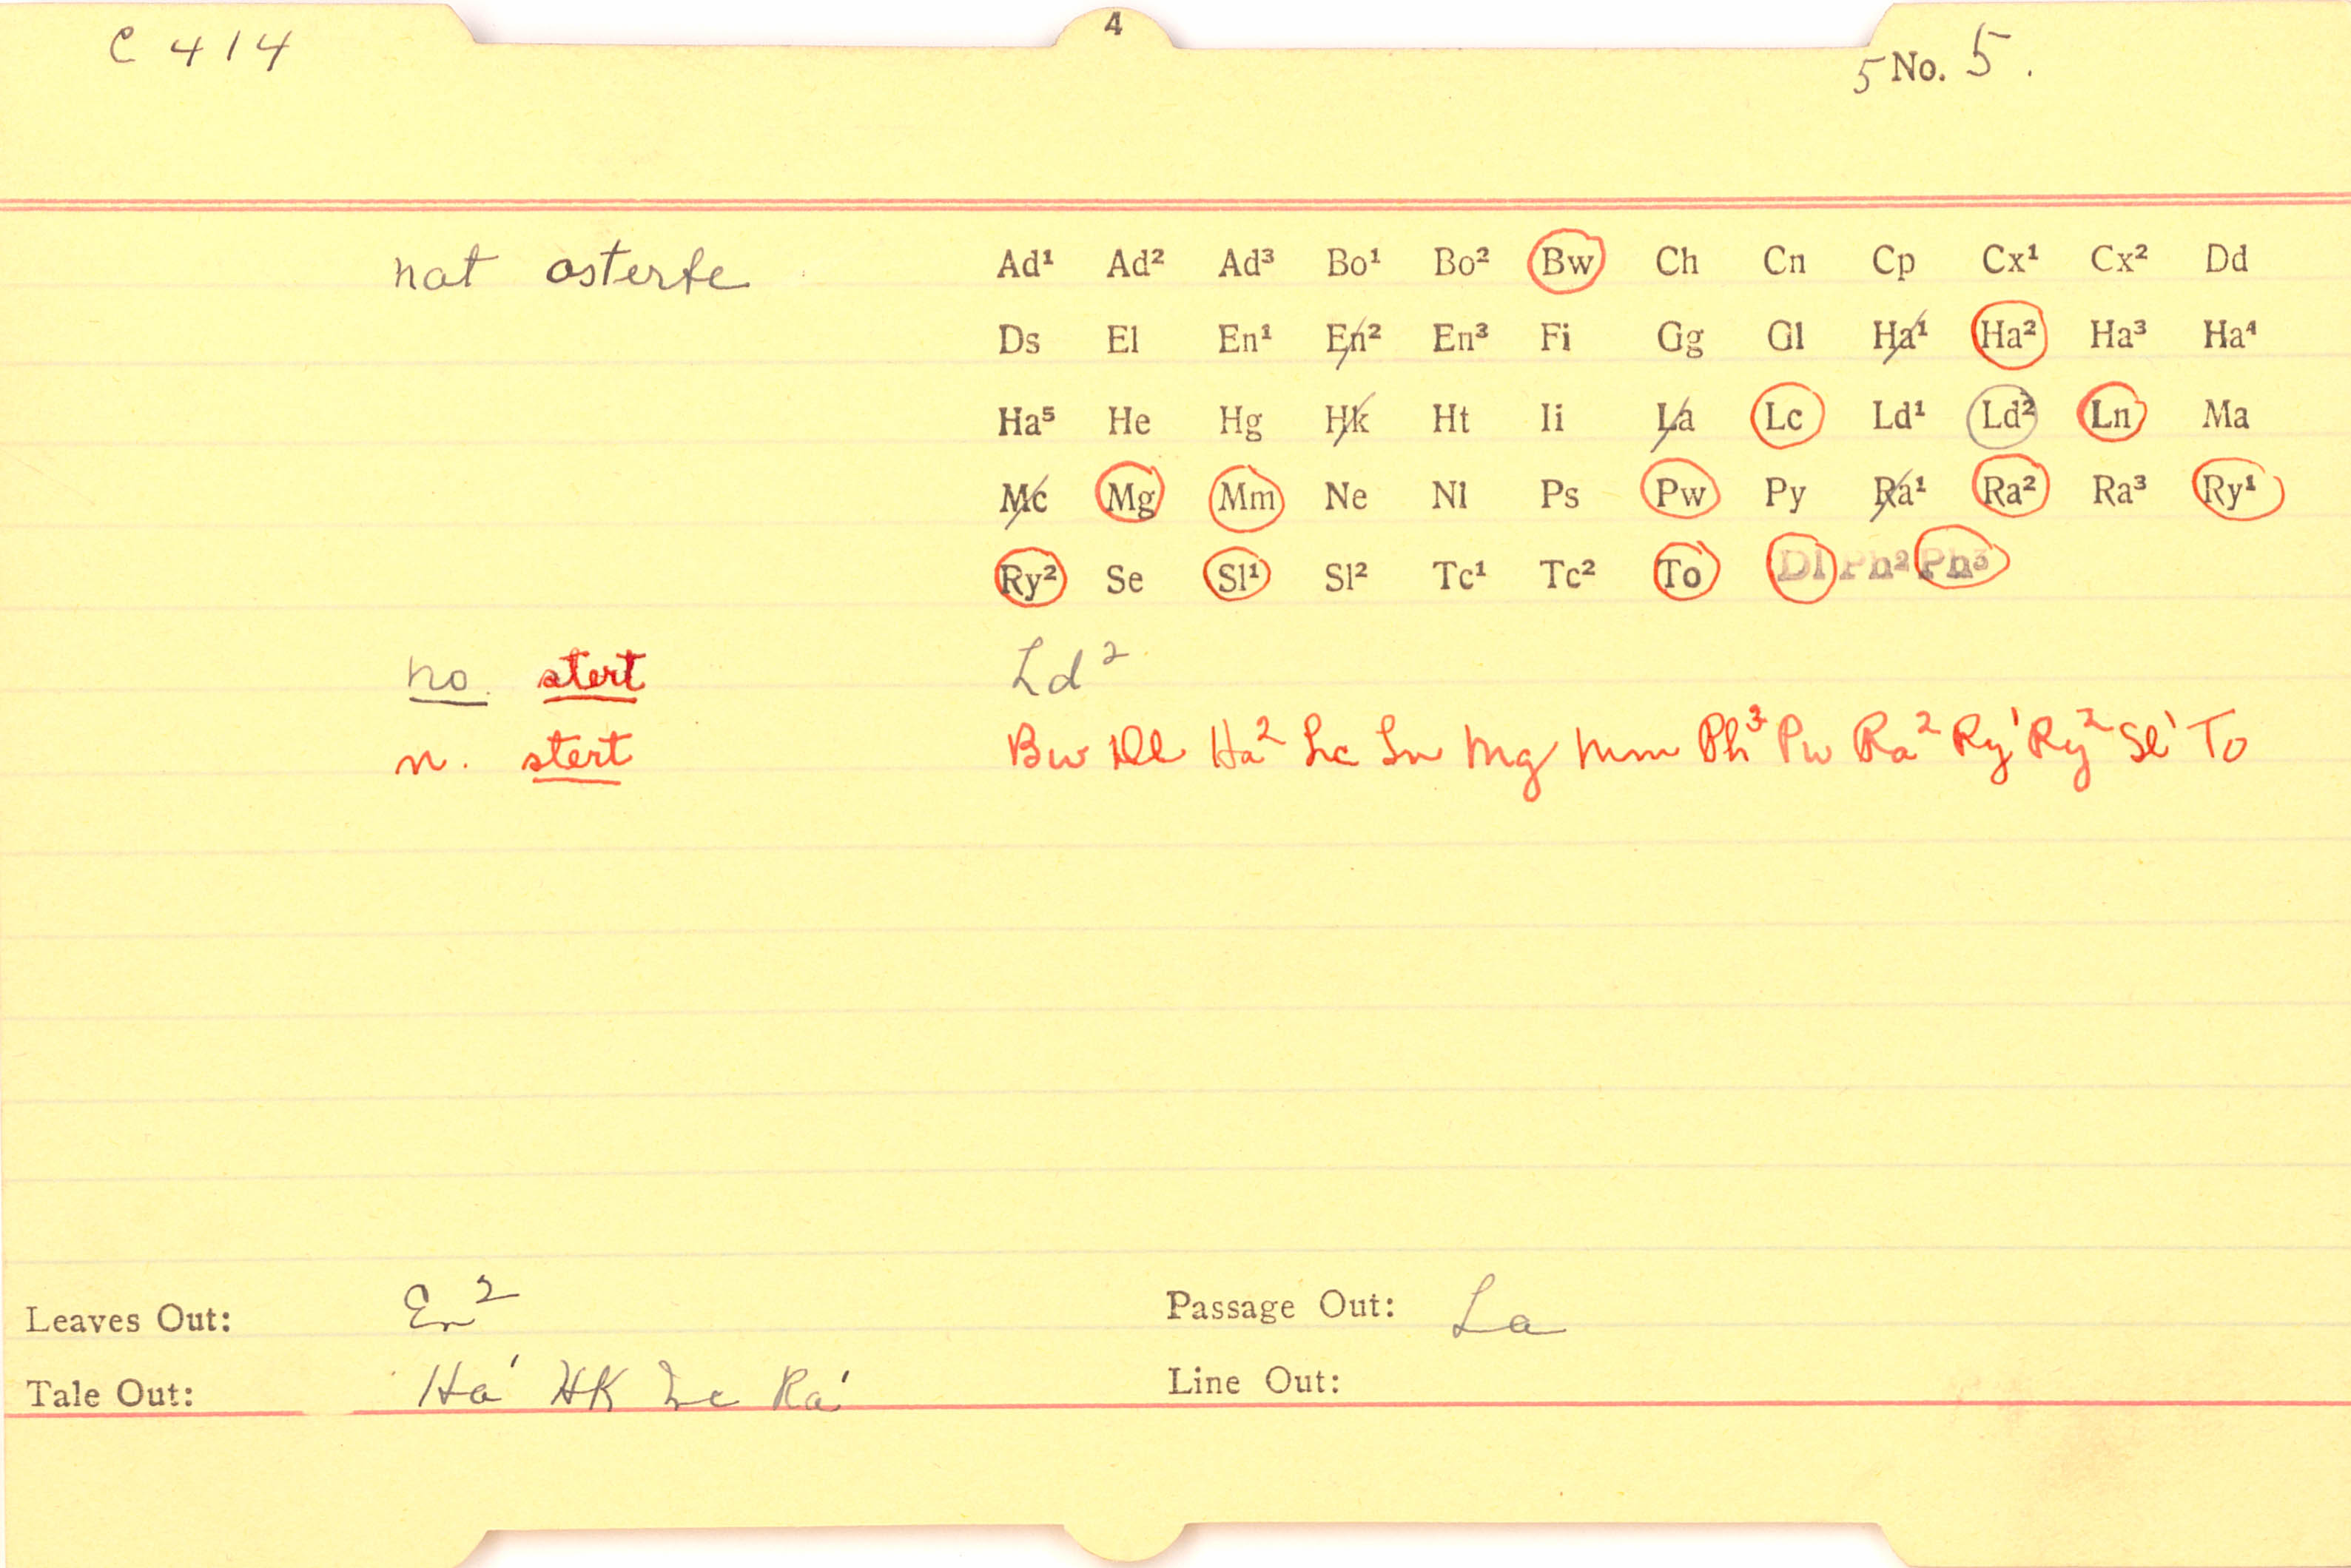 4
C 414
5 No. 5.
nat asterte Ad¹ Ad² Ad³ Bo¹ Bo² Bw Ch Cn Cp Cx¹ Cx² Dd
Ds El En¹ En² En³ Fi Gg Gl Ha¹ Ha² Ha³ Ha⁴
Ha⁵ He Hg Hk Ht Ii La Lc Ld¹ Ld² Ln Ma
Mc Mg Mm Ne Nl Ps Pw Py Ra¹ Ra² Ra³ Ry¹
Ry² Se Sl¹ Sl² Tc¹ Tc² To Dl Ph² Ph³
no. stert Ld²
n. stert Bw Dl Ha² Lc Ln Mg Mm Ph³ Pw Ra² Ry¹ Ry² Sl¹ To
Leaves Out: En² Passage Out: La
Tale Out: Ha¹ Hk Ra¹ Line Out: